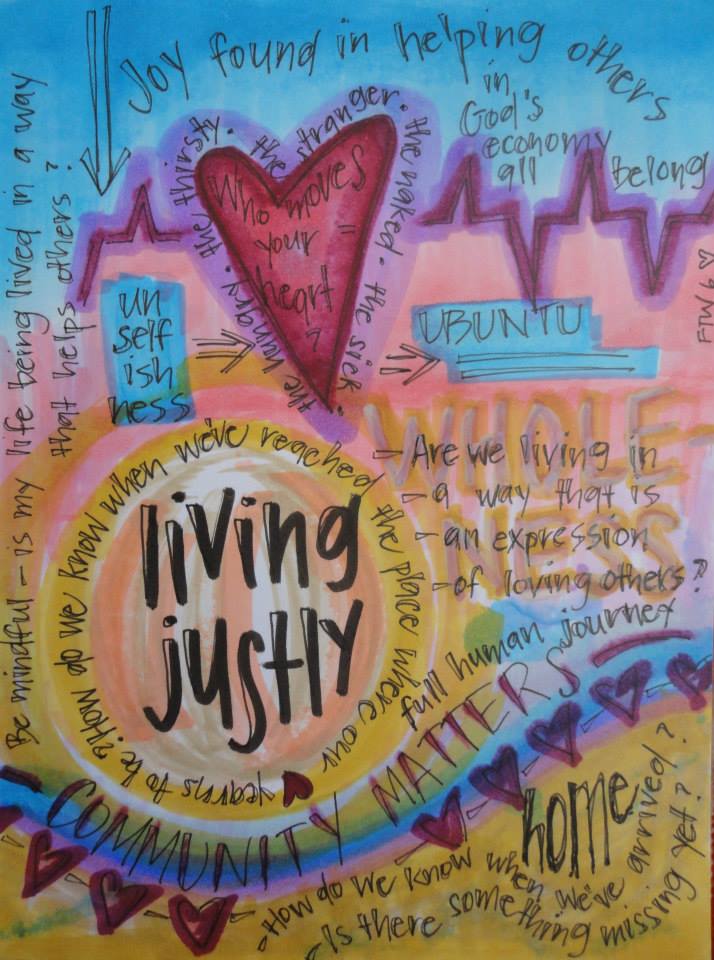 Joy found in helping others
in
God's
economy
all belong
Be mindful - is my life being lived in a way
that helps others?
the hungry. the thirsty. the stranger. the naked. the sick.
Who moves
your
heart
?
un
self
ish
ness
UBUNTU
WHOLE-
NESS
- Are we living in
- a way that is
- an expression
- of loving others?
How do we know when we've reached the place where our yearns to be?
living
justly
full human journey
COMMUNITY MATTERS
home
- How do we know when we've arrived?
- Is there something missing yet?